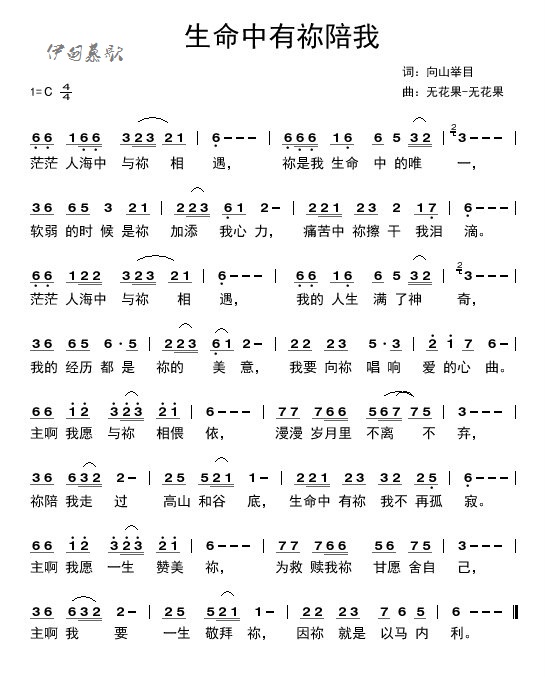 生命中有祢陪我
伊甸慕歌
词：向山举目
1=C 4/4
曲：无花果-无花果
66 166 3232 1 | 6--- | 666 16 6 5 32 | 3--- |
茫茫 人海中 与祢 相 遇， 祢是我 生命 中 的唯 一，
36 65 3 21 | 223 61 2- | 221 23 2 17 | 6--- |
软弱 的时 候 是祢 加添 我心 力， 痛苦中 祢擦 干 我泪 滴。
66 122 323 21 | 6--- | 66 16 6 5 32 | 3--- |
茫茫 人海中 与祢 相 遇， 我的 人生 满 了神 奇，
36 65 6·5 | 223 61 2- | 22 23 5·3 | 2 1 7 6- |
我的 经历 都 是 祢的 美 意， 我要 向祢 唱 响 爱 的心 曲。
66 12 323 21 | 6--- | 77 766 567 75 | 3--- |
主啊 我愿 与祢 相偎 依， 漫漫 岁月里 不离 不 弃，
36 632 2- | 25 521 1- | 221 23 32 25 | 6--- |
祢陪 我走 过 高山 和谷 底， 生命中 有祢 我不 再孤 寂。
66 12 323 21 | 6--- | 77 766 56 75 | 3--- |
主啊 我愿 一生 赞美 祢， 为救 赎我祢 甘愿 舍自 己，
36 632 2- | 25 521 2- | 22 23 5 65 | 6--- ‖
主啊 我 要 一生 敬拜 祢， 因祢 就是 以马 内 利。